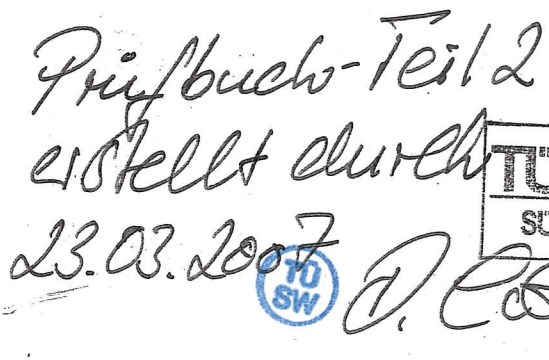 Prüfbuch-Teil 2
erstellt durch TÜ
SÜ
23.03.2007 TÜ
SW
D.